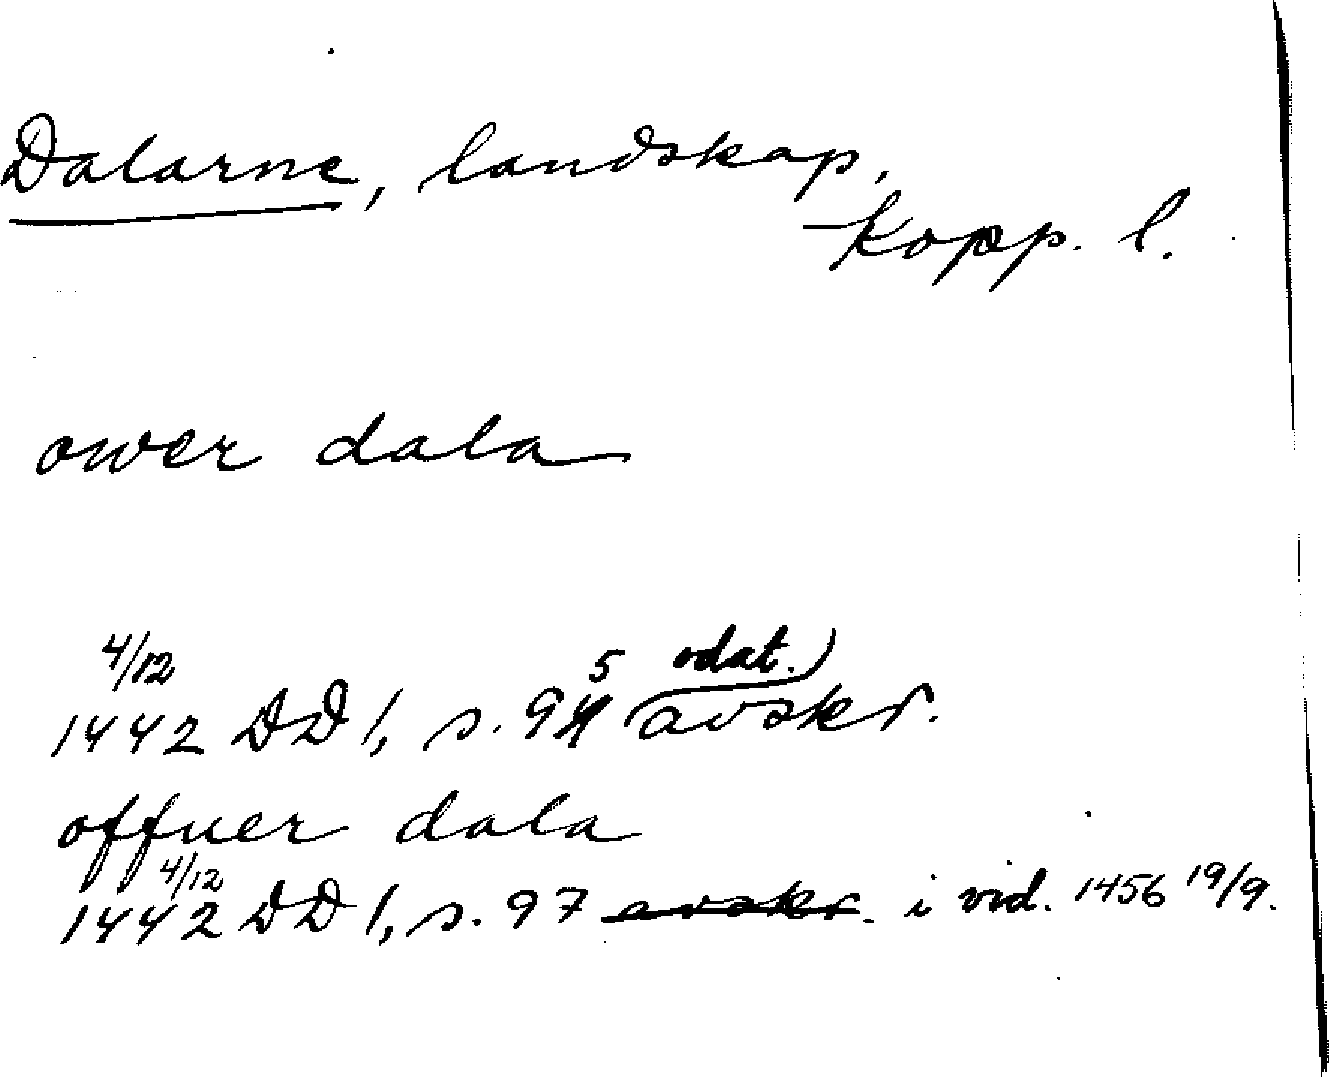 Dalarne, landskap,
Kopp. l.
ower dala
4/12
5 odat.)
1442 DD 1, s. 94 avskr.
offuer dala
4/12
1442 DD 1, s. 97 avskr. i vid. 1456 19/9.